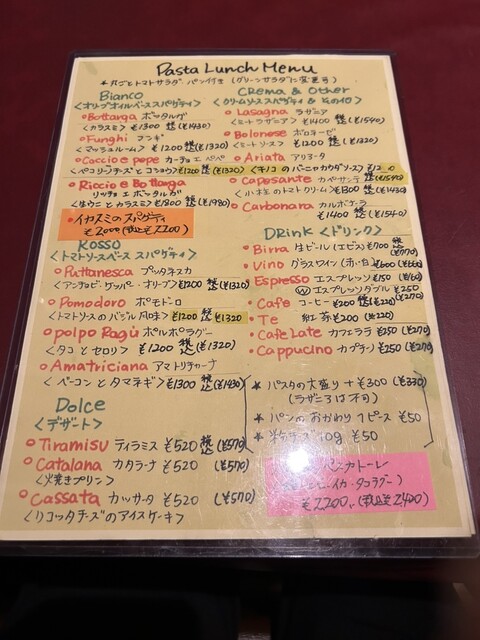 Pasta Lunch Menu
* 丸ごとトマトサラダ、パン付き (グリーンサラダに変更可)
Bianco
<オリーブオイルベーススパゲティ>
Bottarga ボッタルガ
<カラスミ> ¥1300 税込 (¥1430)
Funghi フンギ
<マッシュルーム> ¥1200 税込 (¥1320)
Caccio e pepe カーチョ エ ペペ
<ペコリーノチーズとコショウ> ¥1200 税込 (¥1320)
Riccio e Bottarga
リッチョ エ ボッタルガ
<ウニとカラスミ> ¥1800 税込 (¥1980)
・イカスミのスパゲティ
¥2000 (税込¥2200)
Rosso
<トマトソースベース スパゲティ>
Puttanesca プッタネスカ
<アンチョビ・ケッパー・オリーブ> ¥1200 税込 (¥1320)
Pomodoro ポモドーロ
<トマトソースのバジル風味> ¥1200 税込 ¥1320
polpo Ragù ポルポラグー
<タコとセロリ> ¥1200 税込 (¥1320)
Amatriciana アマトリチャーナ
<ベーコンとタマネギ> ¥1300 税込 (¥1430)
Dolce
<デザート>
Tiramisu ティラミス ¥520 税込 (¥570)
Catalana カタラーナ ¥520 (¥570)
<火焼きプリン>
Cassata カッサータ ¥520 (¥570)
<リコッタチーズのアイスケーキ>
Crema & Other
<クリームソーススパゲティ & その他>
Lasagna ラザニア
<ミートラザニア> ¥1400 税込 (¥1540)
Bolonese ボロネーゼ
<ミートソース> ¥1200 税込 (¥1320)
Ariata アリアータ
<キノコのバーニャカウダソース>
Capesante カペサンテ 税込
<小柱のトマトクリーム> ¥1300 (¥1430)
Carbonara カルボナーラ
¥1400 税込 (¥1540)
Drink <ドリンク>
Birra 生ビール (エビス) ¥700 税込 (¥770)
Vino グラスワイン (赤・白) ¥600 (¥660)
Espresso エスプレッソ ¥150 (¥160)
Ⓦ エスプレッソダブル ¥250
Cafe コーヒー ¥200 税込 (¥220)
Te 紅茶 ¥200 (¥220)
Cafe Late カフェラテ ¥250 (¥270)
Cappucino カプチーノ ¥250 (¥270)
* パスタの大盛り +¥300 (¥330)
(ラザニアは不可)
* パンのおかわり 1ピース ¥50
* 粉チーズ 10g ¥50
¥2200. (税込¥2400)